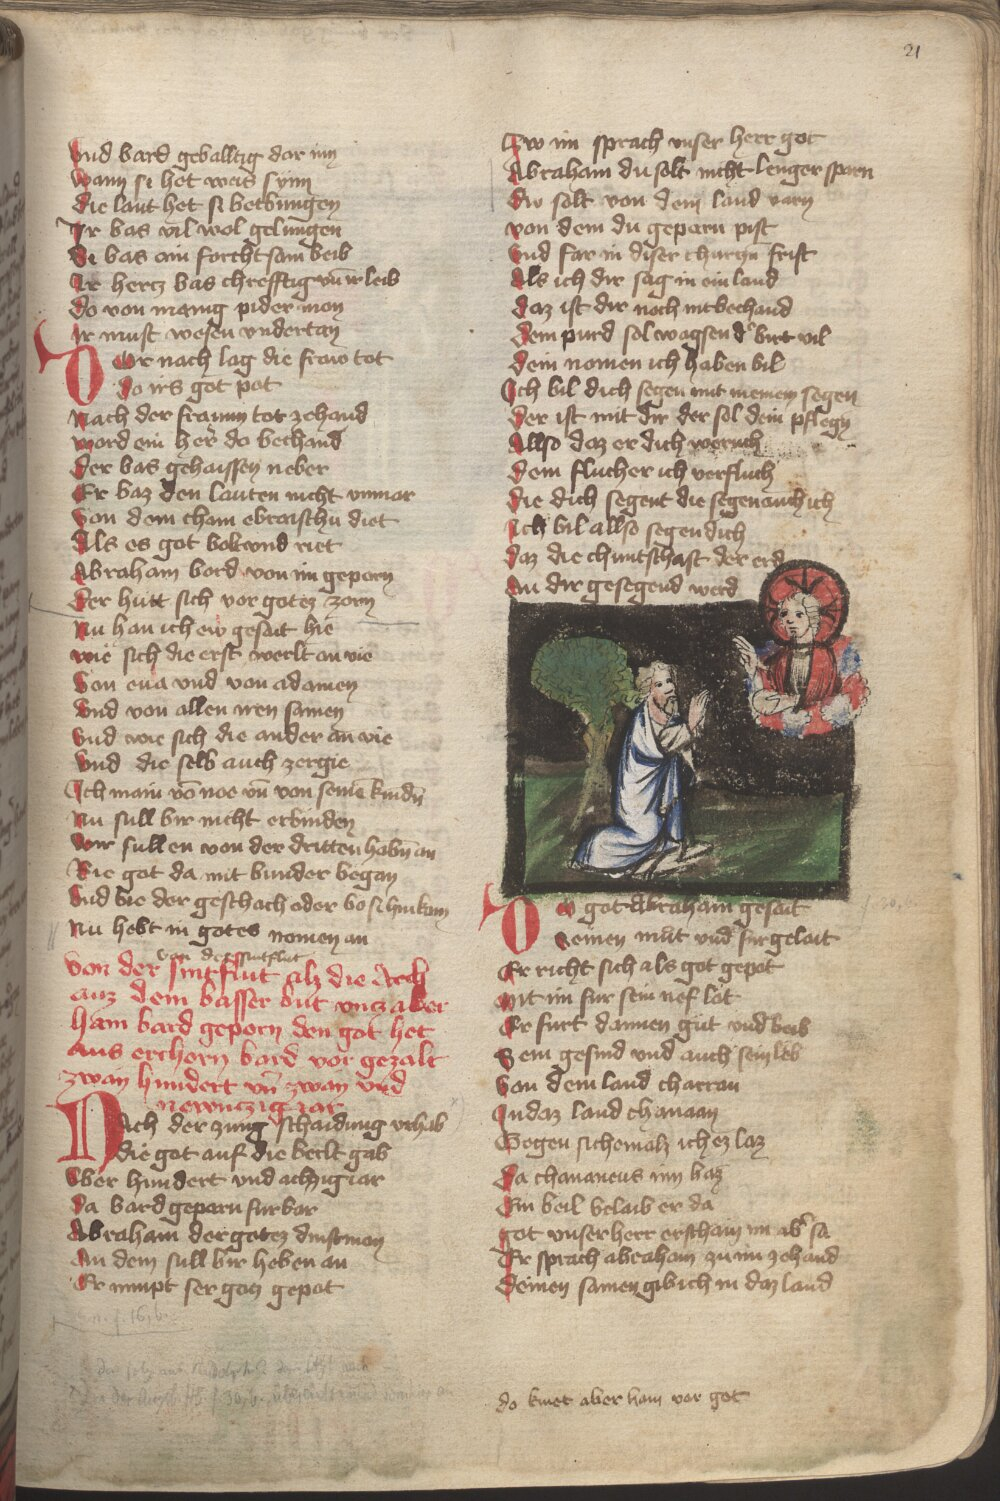 21
vnd bard geballtig dar inn
wann si het weis synn
die laut het si betbungen
Ir bas vil wol gelungen
Si bas ain forchtsam beib
Ir hercz bas chrefftig vn̄ ir leib
do von manig pider man
Ir must wesen vndertan
Dar nach lag die fraw tot
do irs got pot
Nach der frawn tot zehand
word ein her do bechand
der bas gehaissen neber
Er baz den lauten nicht vnmar
Von dem cham ebraischu diet
Als es got bolt vnd riet
Abraham bord von im geporn
der hutt sich vor gotez zorn
Nu han ich ew gesait hie
wie sich die erst werlt an vie
Von eua vnd von adamen
Vnd von allen iren samen
Vnd wie sich die ander an vie
Vnd die selb auch zergie
Ich main vō noe vn̄ von seinē kindn̄
Nu sull bir nicht erbinden
wir sullen von der dritten habn̄ an
Wie got da mit bunder began
Vnd bie der geschach oder bo si hin kam
Nu hebt in gotes nomen an
von der sintflut
von der sintflut alz die Arch
auz dem basser but vncz aber
ham bard geporn den got het
aus erchorn bard vor gezalt
zway hundert vn̄ zway vnd
newnczig iar
Nach der zung schaidung vrhab
die got auf die berlt gab
vber hundert vnd achzig iar
da bard geparn furbar
Abraham der gotez dinstman
An dem sull bir heben an
Er nimpt ser gocz gepot
Zw im sprach vnser herr got
Abraham du solt nicht lenger sparn
dw solt von dem land varn
von dem du geparn pist
Vnd far in diser churczn frist
Als ich dir sag in ein land
daz ist dir noch nit bechand
dem purd sol wagsen d' birt vil
dein nomen ich haben bil
Ich bil dich segen mit meinem segen
der ist mit dir der sol dein pflegn
Allso daz er dich
dem flucher ich verfluch
die dich segent die segen auch ich
Ich bil allso segen dich
daz die chuntschaft der erd
An dir gesegend werd
Do got Abraham gesait
Seinen mut vnd fur geloit
Er richt sich als got gepot
mit im fur sein nef lot
Er furt dannen gut vnd beib
Sein gesind vnd auch sein leb
Von dem land charran
In daz land chanaan
Gegen sichem alz ich ez laz
da chananeus inn baz
Ein beil belaib er da
got vnser herr erscham im ab' sa
Er sprach abraham zu im zehand
deinen samen gib ich in daz land
do kniet aber ham vor got